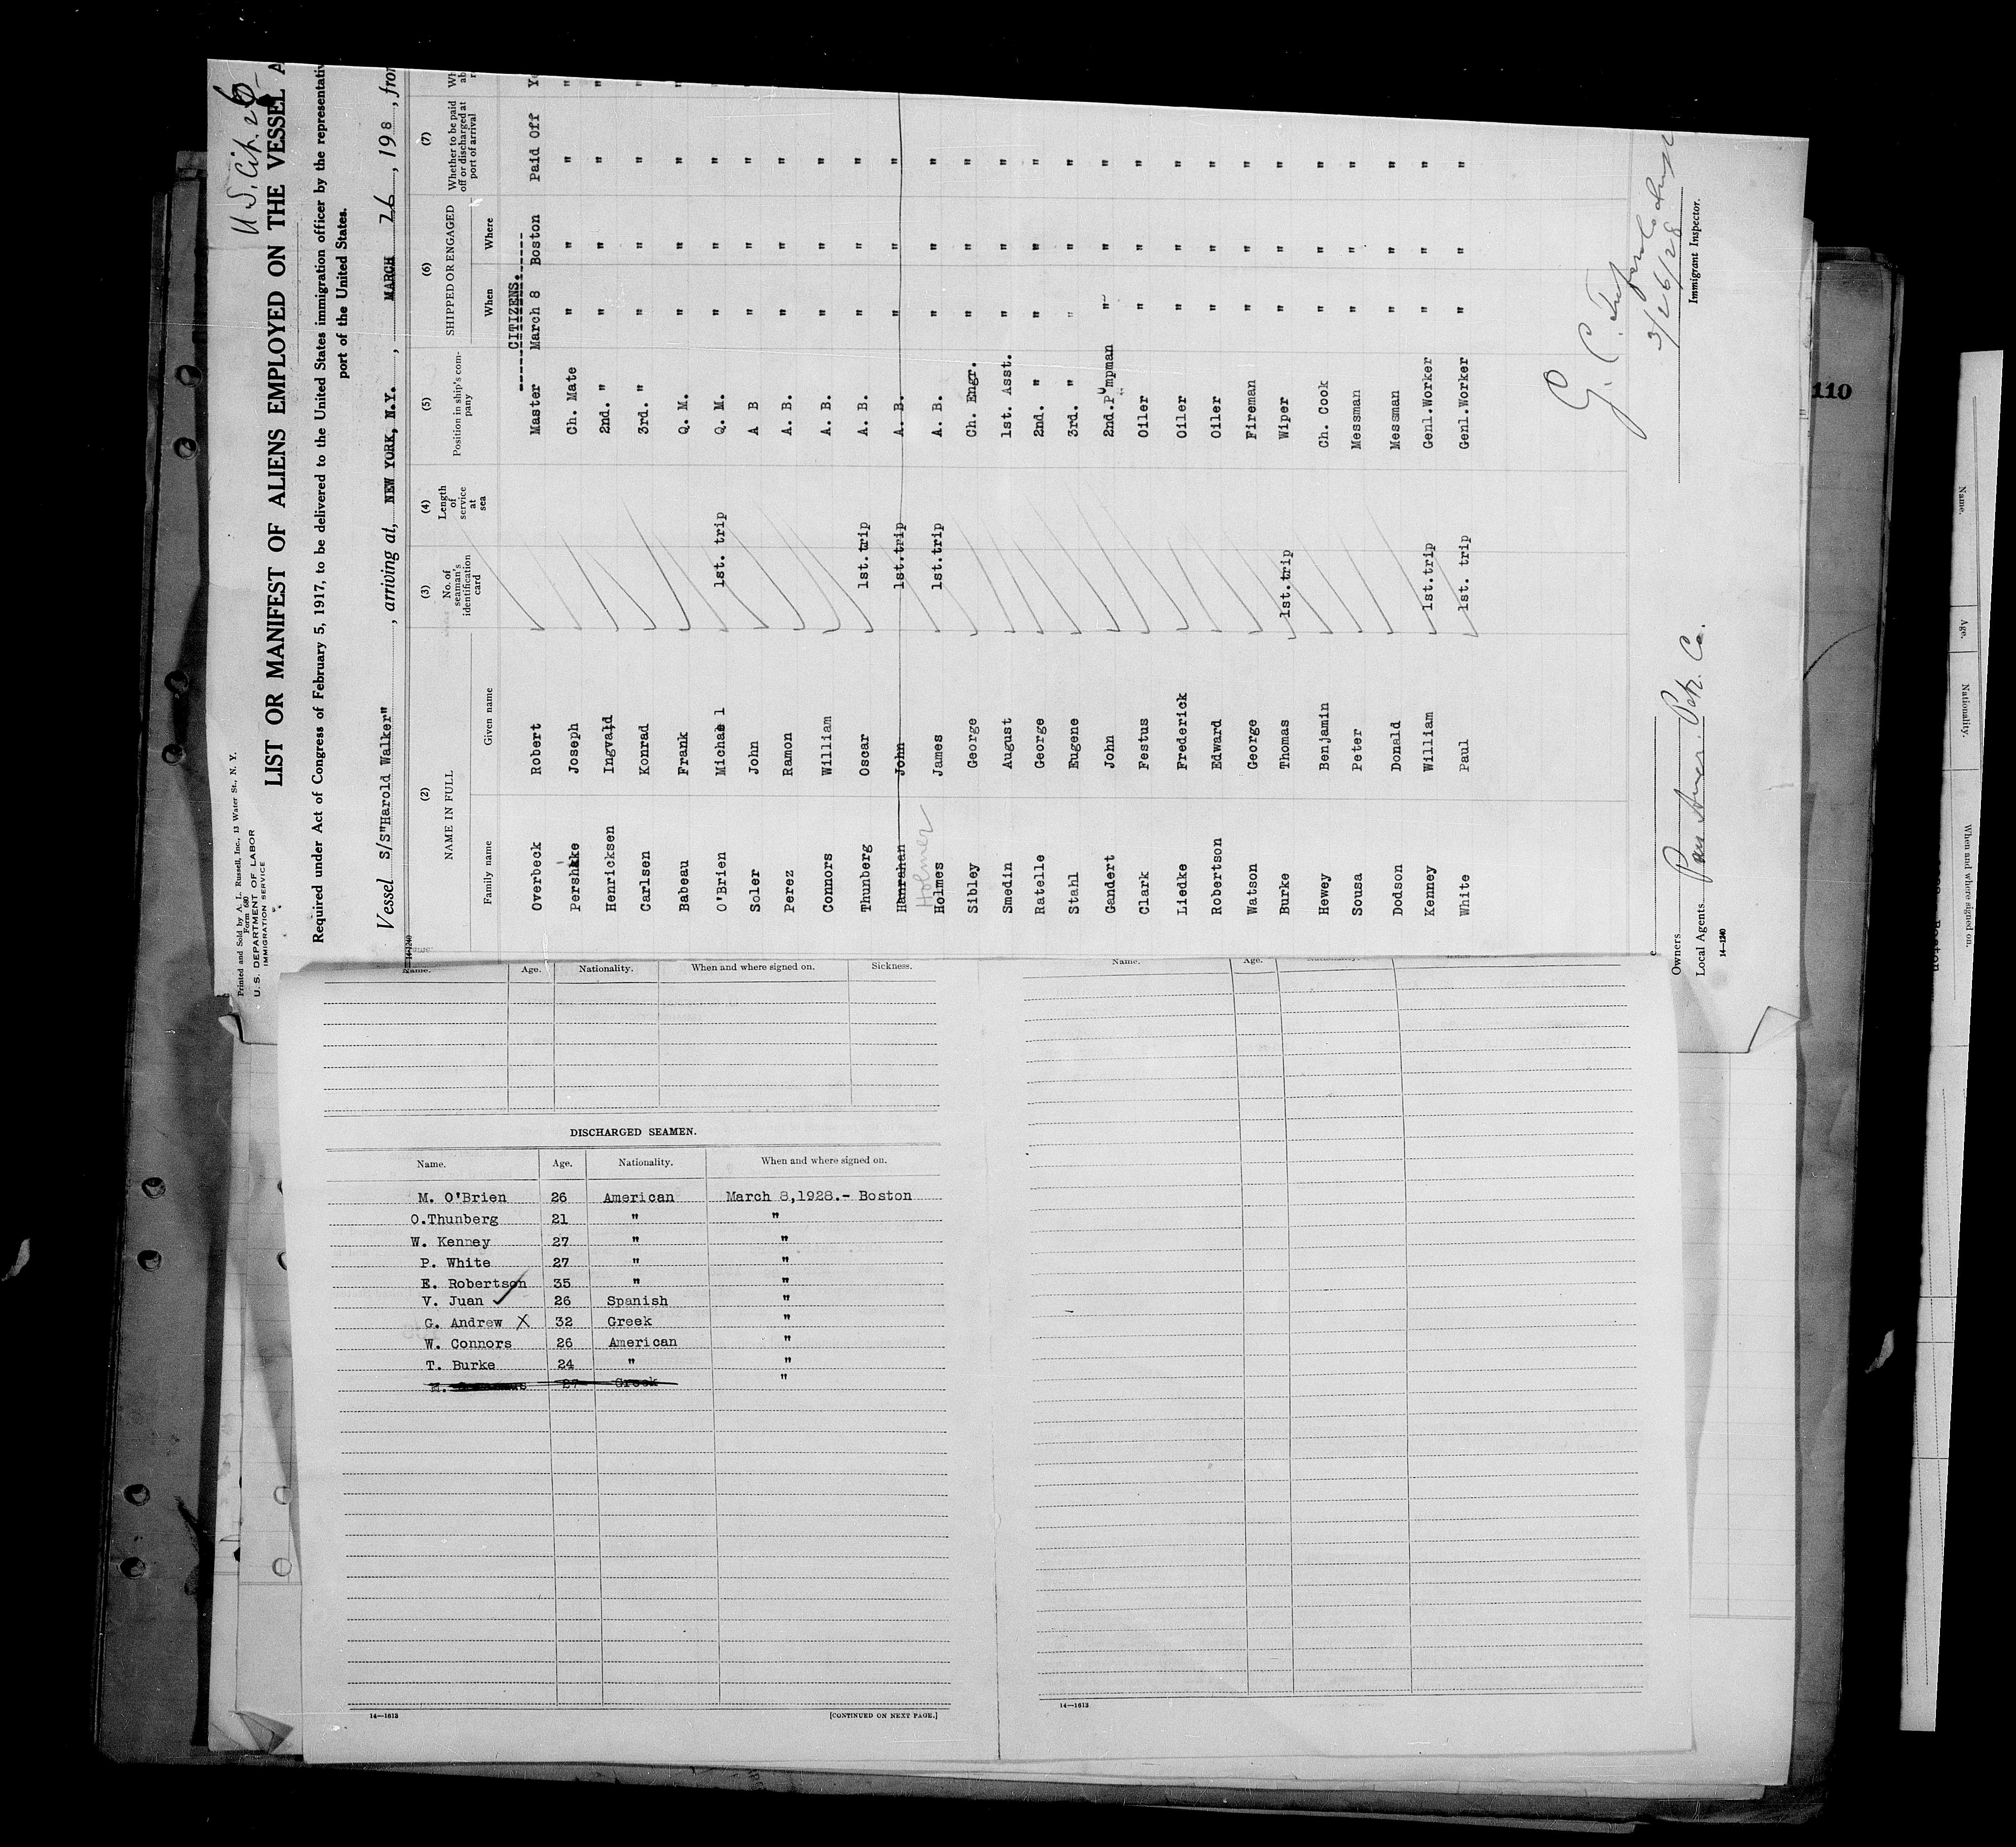 U.S. Cit. 26
Printed and Sold by A. L. Russell, Inc., 13 Water St., N. Y.
Form 680
U. S. DEPARTMENT OF LABOR
IMMIGRATION SERVICE
LIST OR MANIFEST OF ALIENS EMPLOYED ON THE VESSEL A
Required under Act of Congress of February 5, 1917, to be delivered to the United States immigration officer by the representativ
port of the United States.
Vessel S/S"Harold Walker" , arriving at, NEW YORK, N.Y. , MARCH 26 , 198 , from
(2) (3) (4) (5) (6) (7)
NAME IN FULL No. of seaman's identification card Length of service at sea Position in ship's company SHIPPED OR ENGAGED Whether to be paid off or discharged at port of arrival
Family name Given name When Where
CITIZENS.
Overbeck Robert Master March 8 Boston Paid Off Ye
Pershike Joseph Ch. Mate " " " "
Henricksen Ingvald 2nd. " " " " "
Carlsen Konrad 3rd. " " " " "
Babeau Frank Q. M. " " " "
O'Brien Michael 1st. trip Q. M. " " "
Soler John A B " " "
Perez Ramon A. B. " " "
Connors William A. B. " " "
Thunberg Oscar 1st.trip A. B. " " "
Hanrahan John 1st.trip A. B. " " "
Holmes
Holmes James 1st.trip A. B. " " "
Sibley George Ch. Engr. " " "
Smedin August 1st. Asst. " " "
Ratelle George 2nd. " " " "
Stahl Eugene 3rd. " " " "
Gandert John 2nd.Pumpman " " "
Clark Festus Oiler " " "
Liedke Frederick Oiler " " "
Robertson Edward Oiler " " "
Watson George Fireman " " "
Burke Thomas 1st.trip Wiper " " "
Hewey Benjamin Ch. Cook " " "
Sousa Peter Messman " " "
Dodson Donald Messman " " "
Kenney William 1st.trip Genl.Worker " " "
White Paul 1st. trip Genl.Worker " " "
G. C.
3/26/28
Owners
Local Agents Pan Amer. Petr. Co.
Immigrant Inspector.
14-1240
14-1240
Name. Age. Nationality. When and where signed on. Sickness.
DISCHARGED SEAMEN.
Name. Age. Nationality. When and where signed on.
M. O'Brien 26 American March 8,1928.- Boston
O.Thunberg 21 " "
W. Kenney 27 " "
P. White 27 " "
E. Robertson 35 " "
V. Juan ✓ 26 Spanish "
G. Andrew X 32 Greek "
W. Connors 26 American "
T. Burke 24 " "
27 Greek "
14—1613 [CONTINUED ON NEXT PAGE.]
Name. Age.
14—1613
110
Name. Age. Nationality. When and where signed on.